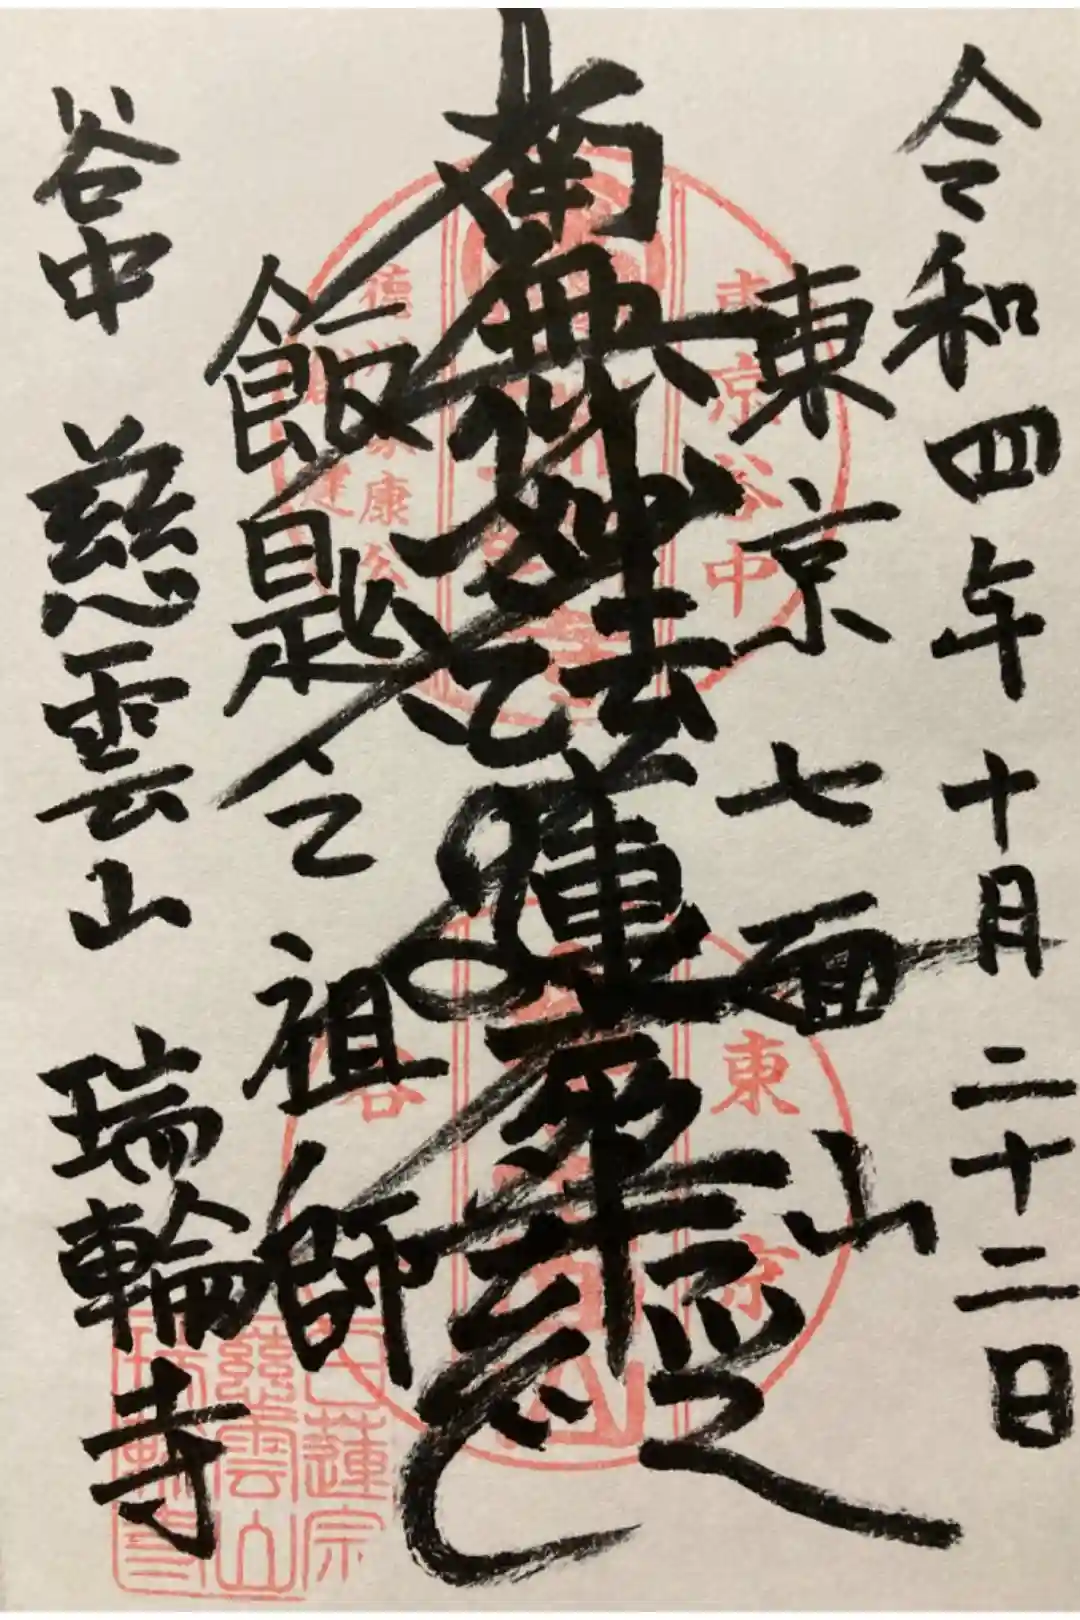 令和四年 十月 二十二日
東京 七面山
南無妙法蓮華經
飯匙之祖師
谷中 慈雲山 瑞輪寺
東京谷中
東京
谷
日蓮宗
慈雲山
瑞輪寺